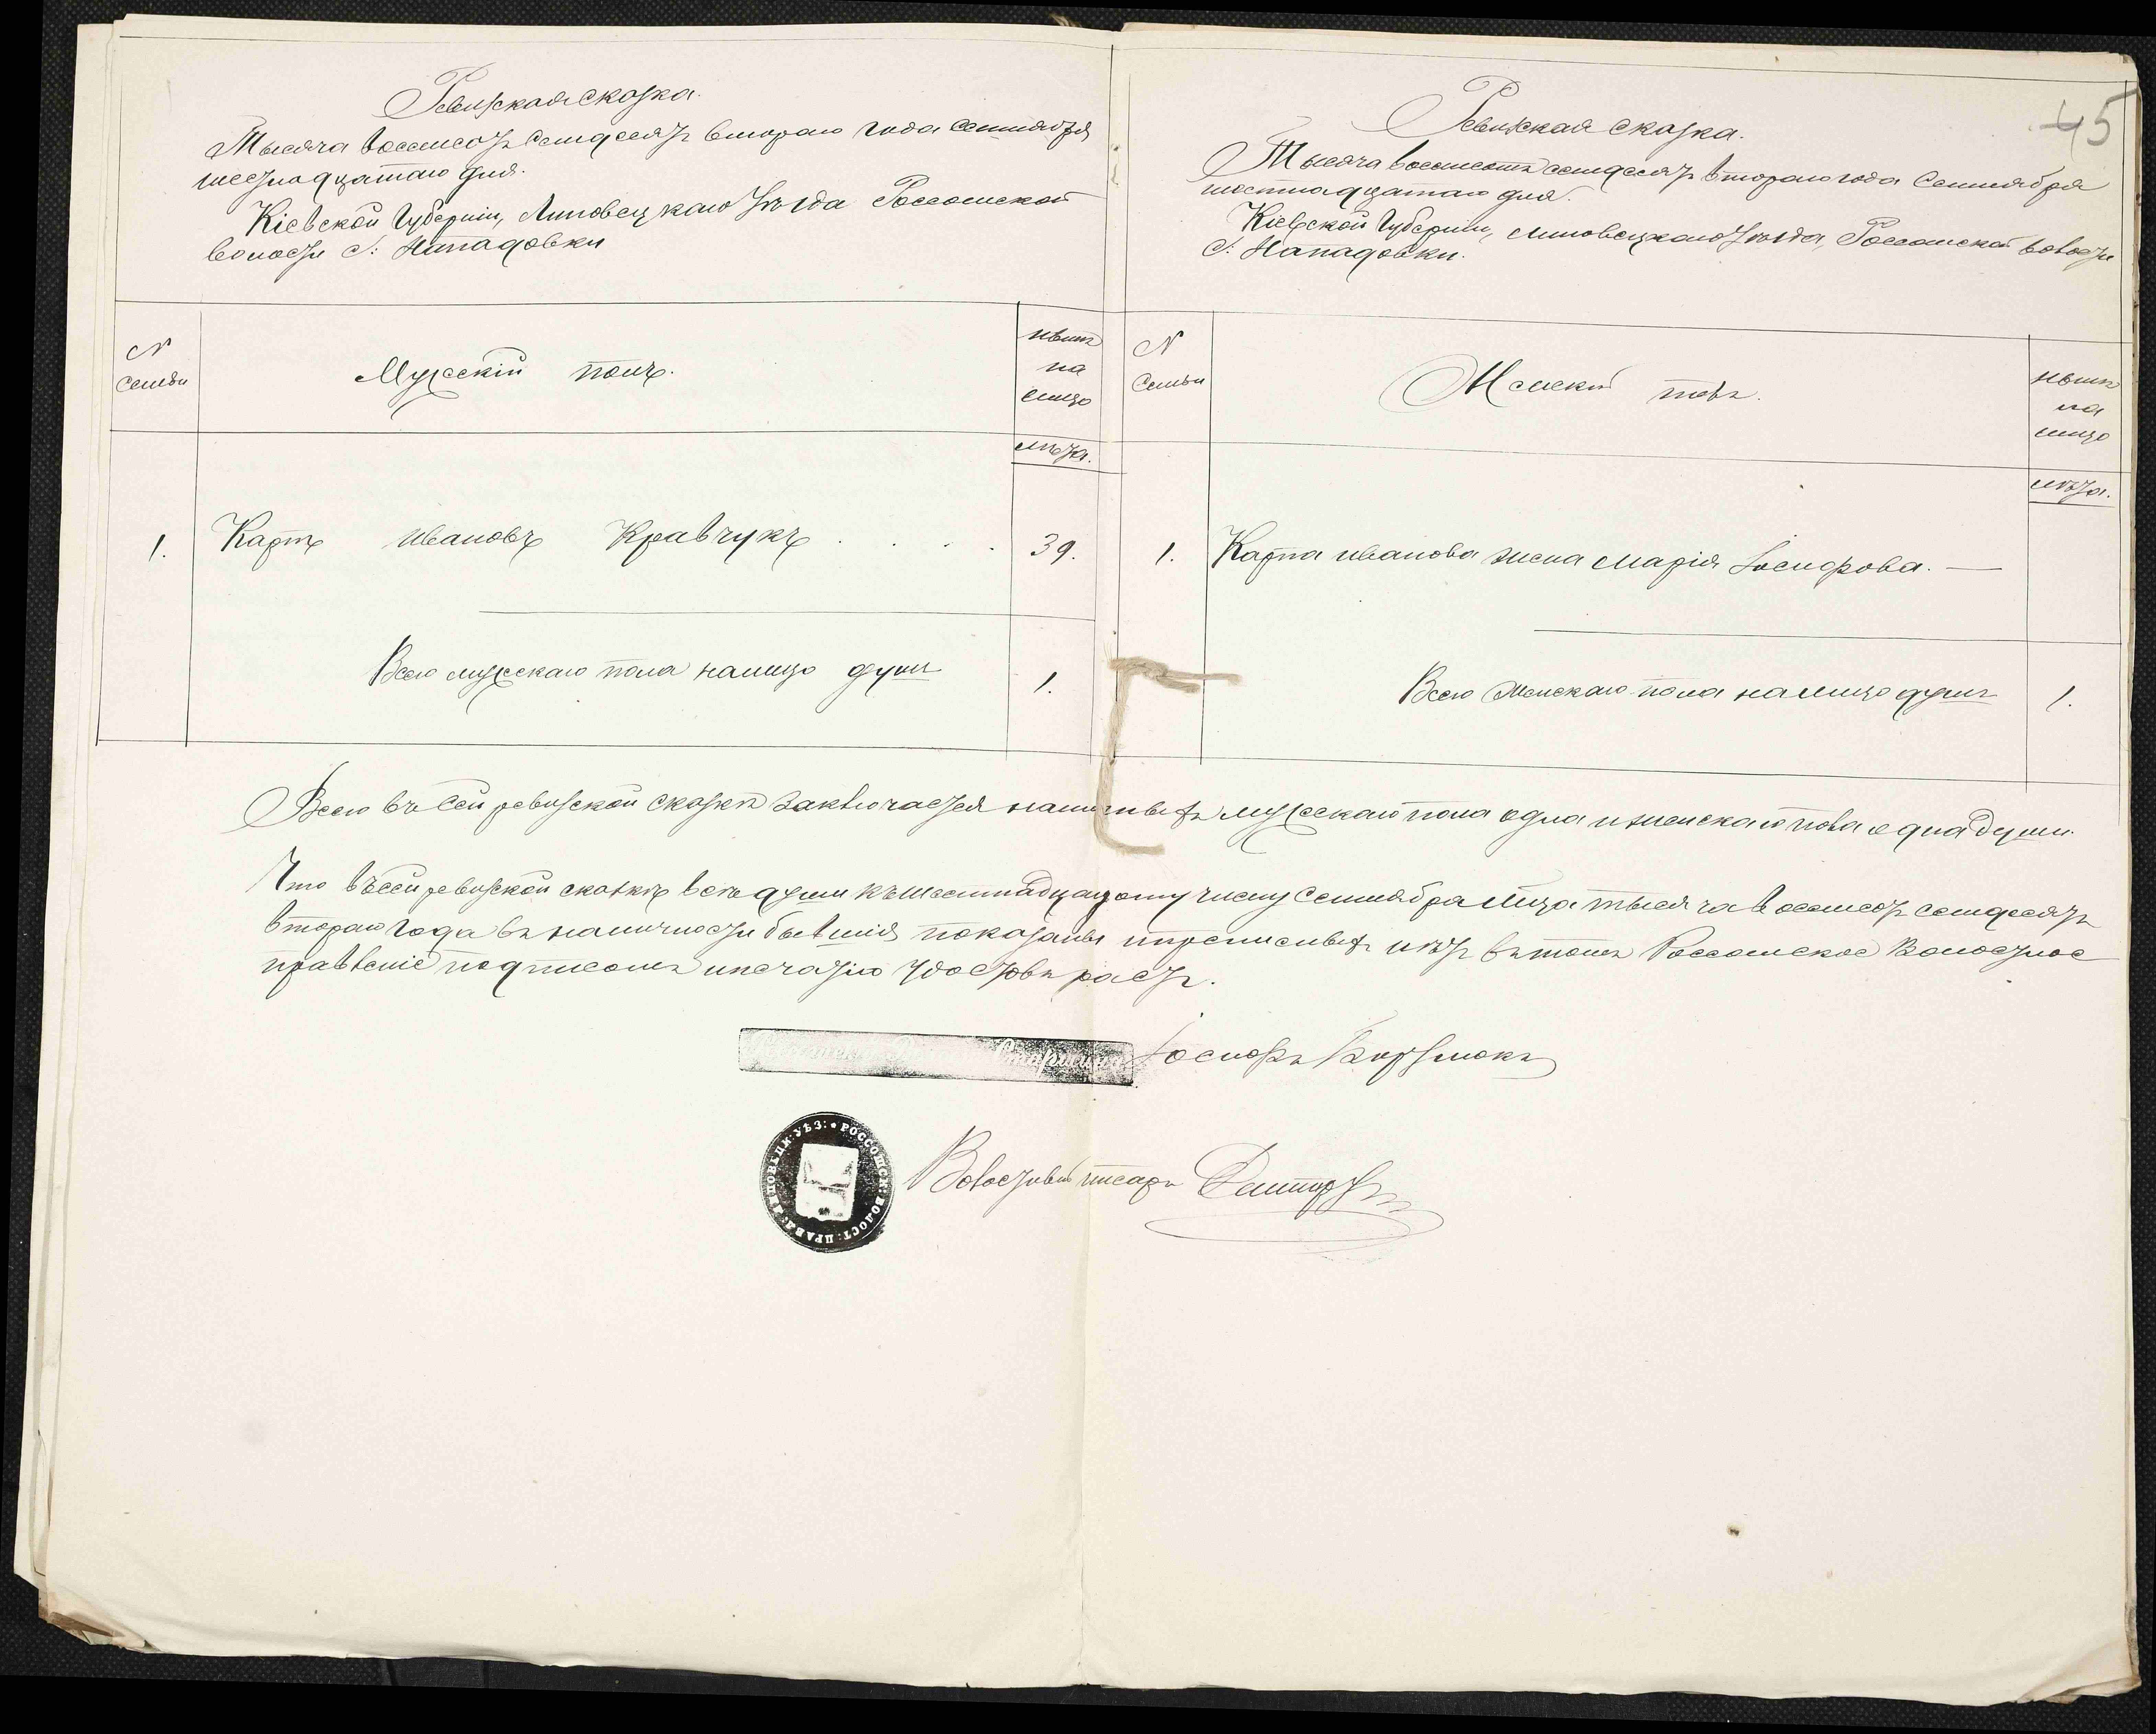 Ревизская сказка.
Тысяча восемсотъ семдесятъ втораго года Сентября
шестнадцатаго дня.
Кіевской Губерніи, Липовецкаго уѣзда Россошской
волости С: Нападовки
N
семьи
Мужескій полъ.
нынѣ
на
лицо
лѣта.
1.
Карпъ Ивановъ Кравчукъ . . . .
39.
Всего мужескаго пола налицо душъ
1.
45
Ревизская сказка.
Тысяча восемсотъ семдесятъ втораго года Сентября
шестнадцатаго дня.
Кіевской Губерніи, Липовецкаго уѣзда, Россошской волости
С. Нападовки.
N
Семьи
Женскій полъ.
нынѣ
на
лицо
лѣта.
1.
Карпа Иванова жена Марія Іосифова. —
Всего Женскаго пола налицо душъ
1.
Всего въ сей ревизской сказкѣ заключается наличныхъ мужескаго пола одна и женскаго пола одна души.
Что въ сей ревизской сказкѣ всѣ души къ шестнадцатому числу Сентября м-ца тысяча восемсотъ семдесятъ
втораго года въ наличности бывшія показаны и прописныхъ нѣтъ въ томъ Россошское Волостное
правленіе подписомъ и печатью удостовѣряетъ.
Іосифъ
Волостный писарь
ЛИПОВЕЦК: УѢЗ: • РОССОШСК: ВОЛОСТ: ПРАВЛ: